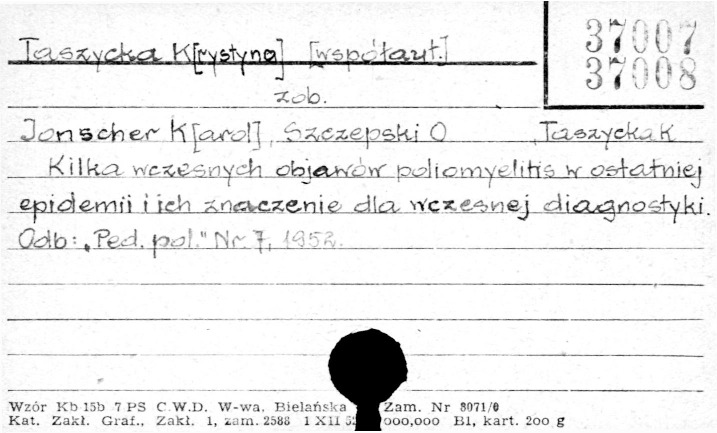 Taszycka K[rystyna] [współaut.]
37007
37008
zob.
Jonscher K[arol], Szczepski O Taszycka K
Kilka wczesnych objawów poliomyelitis w ostatniej
epidemii i ich znaczenie dla wczesnej diagnostyki.
Odb: „Ped. pol." Nr 7, 1952.
Wzór Kb 15b 7 PS C.W.D. W-wa, Bielańska Zam. Nr 8071/0
Kat. Zakł. Graf., Zakł. 1, zam. 2588 1 XII 52 000,000 Bl, kart. 200 g